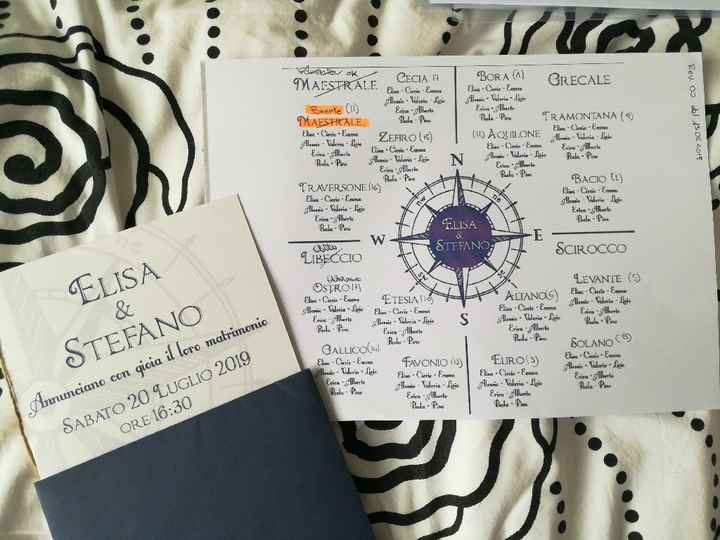 MAESTRALE
Brente (11)
MAESTRALE
Elisa - Cinzia - Emma
Alessia - Valeria - Ligio
Erica - Alberto
Paola - Pino
CECIA
Elisa - Cinzia - Emma
Alessia - Valeria - Ligio
Erica - Alberto
Paola - Pino
ZEFIRO
Elisa - Cinzia - Emma
Alessia - Valeria - Ligio
Erica - Alberto
Paola - Pino
TRAVERSONE (16)
Elisa - Cinzia - Emma
Alessia - Valeria - Ligio
Erica - Alberto
Paola - Pino
BORA
Elisa - Cinzia - Emma
Alessia - Valeria - Ligio
Erica - Alberto
Paola - Pino
GRECALE
TRAMONTANA
Elisa - Cinzia - Emma
Alessia - Valeria - Ligio
Erica - Alberto
Paola - Pino
AQUILONE
Elisa - Cinzia - Emma
Alessia - Valeria - Ligio
Erica - Alberto
Paola - Pino
BACIO
Elisa - Cinzia - Emma
Alessia - Valeria - Ligio
Erica - Alberto
Paola - Pino
N
W
E
S
ELISA
&
STEFANO
LIBECCIO
OSTRO
Elisa - Cinzia - Emma
Alessia - Valeria - Ligio
Erica - Alberto
Paola - Pino
ETESIA
Elisa - Cinzia - Emma
Alessia - Valeria - Ligio
Erica - Alberto
Paola - Pino
GALLICO
Elisa - Cinzia - Emma
Alessia - Valeria - Ligio
Erica - Alberto
Paola - Pino
FAVONIO
Elisa - Cinzia - Emma
Alessia - Valeria - Ligio
Erica - Alberto
Paola - Pino
SCIROCCO
ALTANO
Elisa - Cinzia - Emma
Alessia - Valeria - Ligio
Erica - Alberto
Paola - Pino
LEVANTE
Elisa - Cinzia - Emma
Alessia - Valeria - Ligio
Erica - Alberto
Paola - Pino
EURO
Elisa - Cinzia - Emma
Alessia - Valeria - Ligio
Erica - Alberto
Paola - Pino
SOLANO
Elisa - Cinzia - Emma
Alessia - Valeria - Ligio
Erica - Alberto
Paola - Pino
ELISA
&
STEFANO
Annunciano con gioia il loro matrimonio
SABATO 20 LUGLIO 2019
ORE 16:30